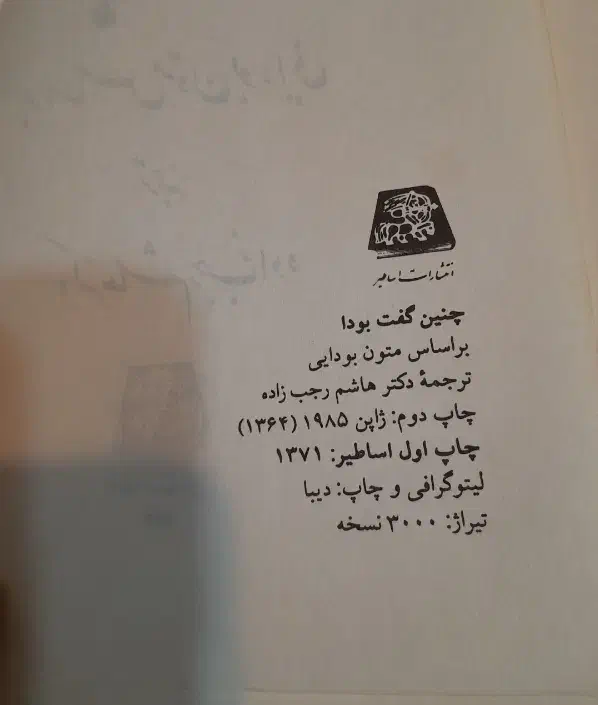 انتشارات اساطیر
چنین گفت بودا
براساس متون بودایی
ترجمهٔ دکتر هاشم رجب زاده
چاپ دوم: ژاپن ۱۹۸۵ (۱۳۶۴)
چاپ اول اساطیر: ۱۳۷۱
لیتوگرافی و چاپ: دیبا
تیراژ: ۳۰۰۰ نسخه